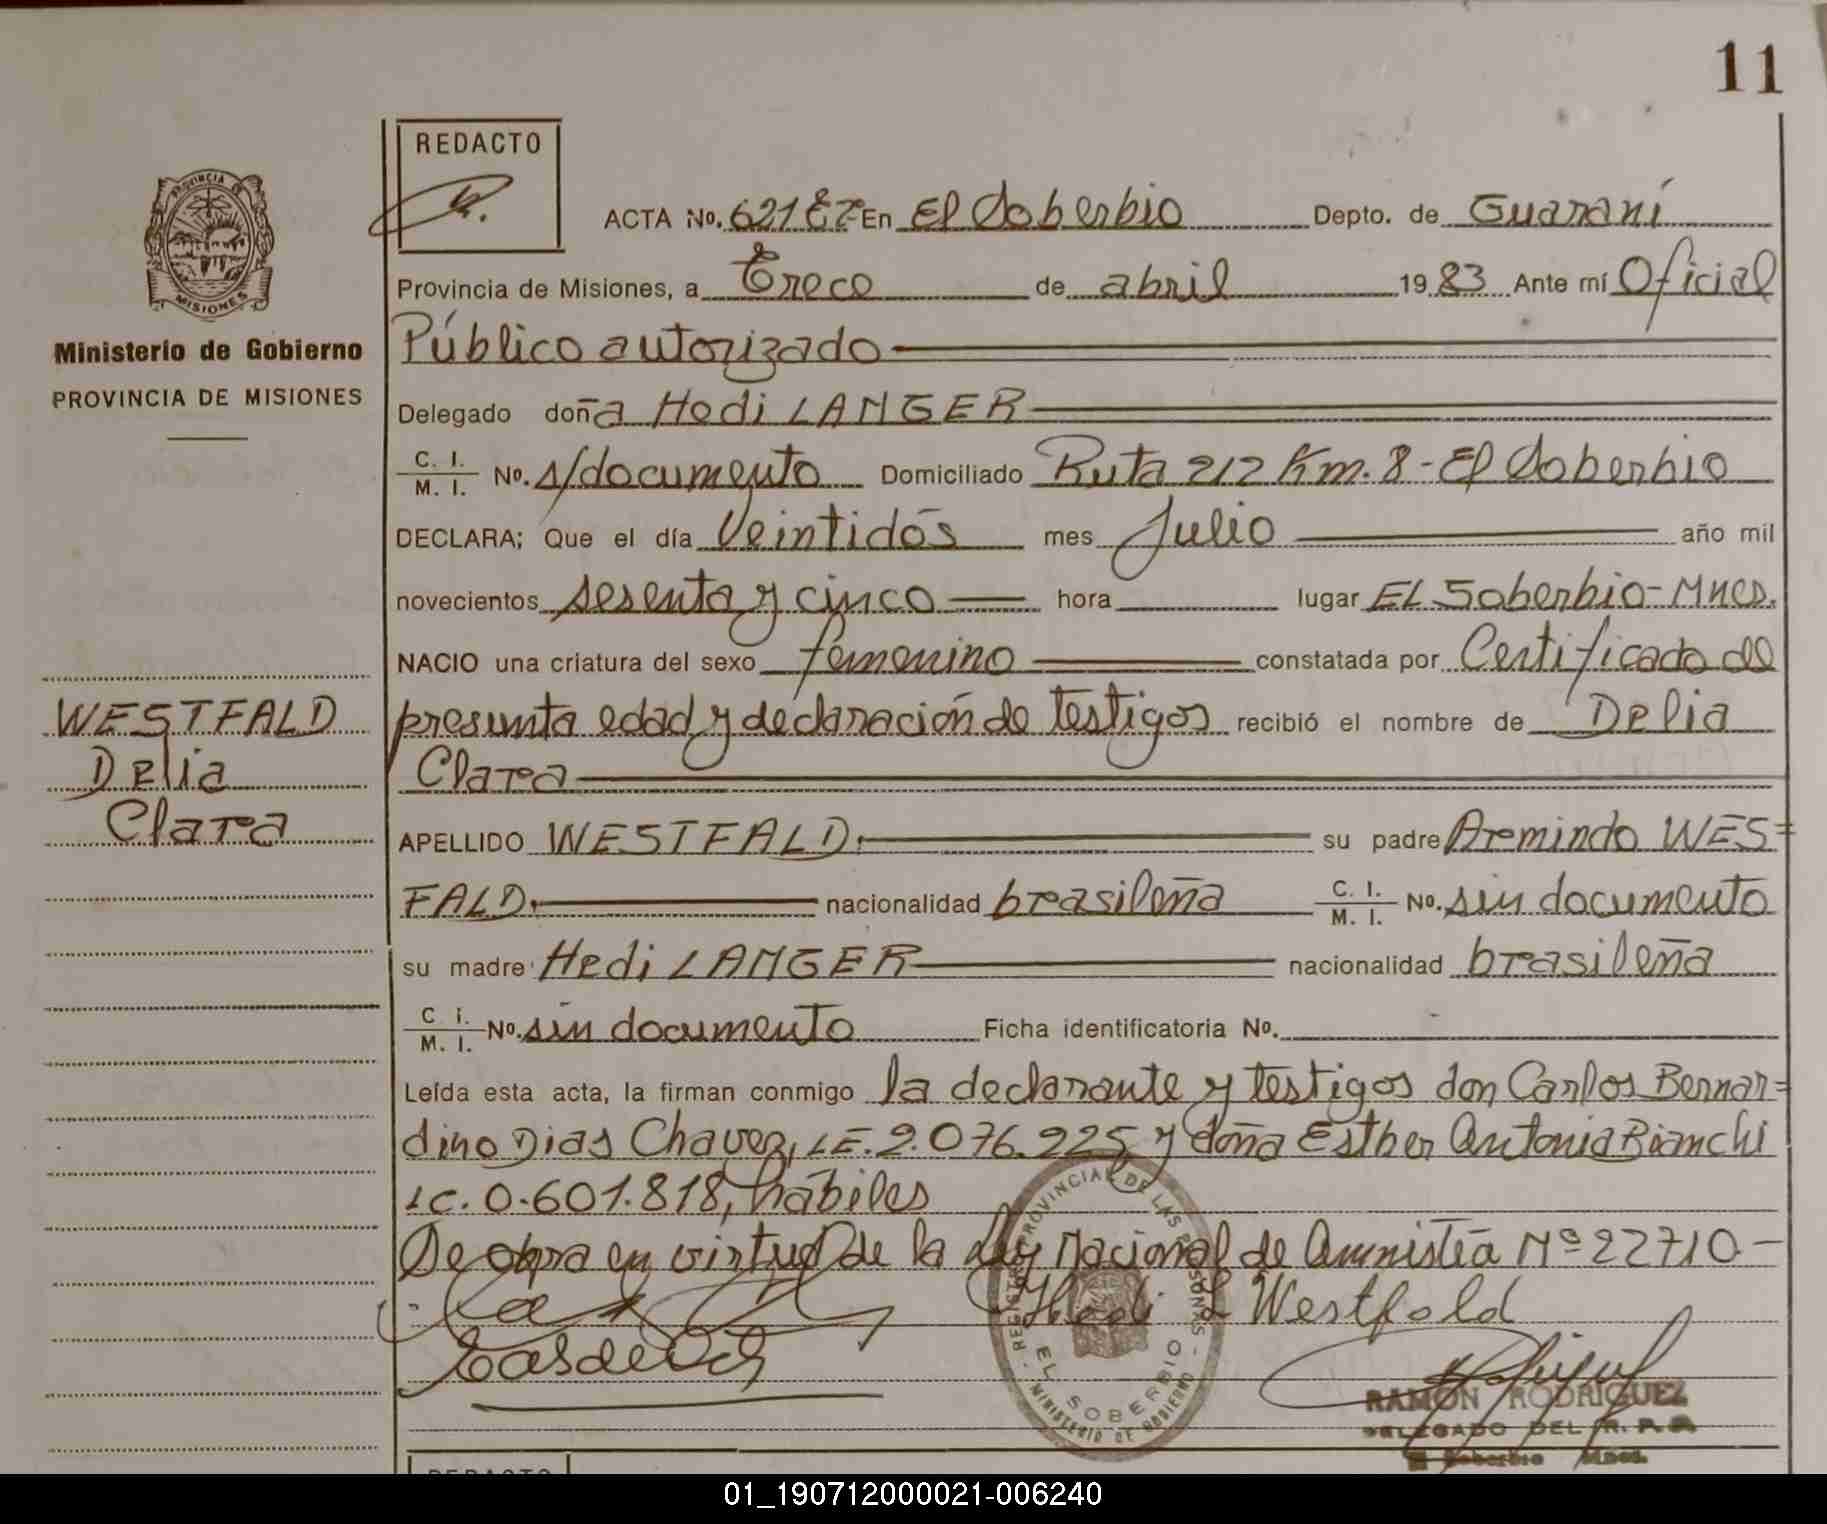 11
REDACTO
ACTA No. 621 En El Soberbio Depto. de Guaraní
Provincia de Misiones, a Trece de abril 1983 Ante mí Oficial
Público autorizado
Delegado doña Hedi LANGER
C. I. / M. I. No. s/documento Domiciliado Ruta 212 Km. 8 - El Soberbio
DECLARA; Que el día Veintidós mes Julio año mil
novecientos sesenta y cinco hora lugar EL Soberbio - Mnes.
NACIO una criatura del sexo femenino constatada por Certificado de
presunta edad y declaración de testigos recibió el nombre de Delia
Clara
APELLIDO WESTFALD su padre Armindo WES=
FALD nacionalidad brasileña C. I. / M. I. No. sin documento
su madre Hedi LANGER nacionalidad brasileña
C. I. / M. I. No. sin documento Ficha identificatoria No.
Leída esta acta, la firman conmigo la declarante y testigos don Carlos Bernar=
dino Dias Chavez, LE. 2.076.225 y doña Esther Antonia Bianchi
LC. 0.601.818, hábiles
Se obra en virtud de la Ley Nacional de Amnistía Nº 22710 -
Hedi L Westfald
RAMON RODRIGUEZ
DELEGADO DEL R. P. P.
El Soberbio Mnes.
REGISTRO PROVINCIAL DE LAS PERSONAS
EL SOBERBIO
MINISTERIO DE GOBIERNO
PROVINCIA DE
MISIONES
Ministerio de Gobierno
PROVINCIA DE MISIONES
WESTFALD
Delia
Clara
REDACTO
01_190712000021-006240